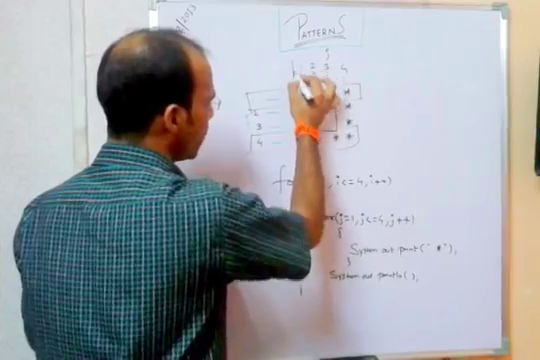 PATTERNS
2 3 4
*
2 *
3 *
4 * *
for , i<=4, i++)
(j=1, j<=4, j++)
{
System out print(" * "),
}
System out println( ),